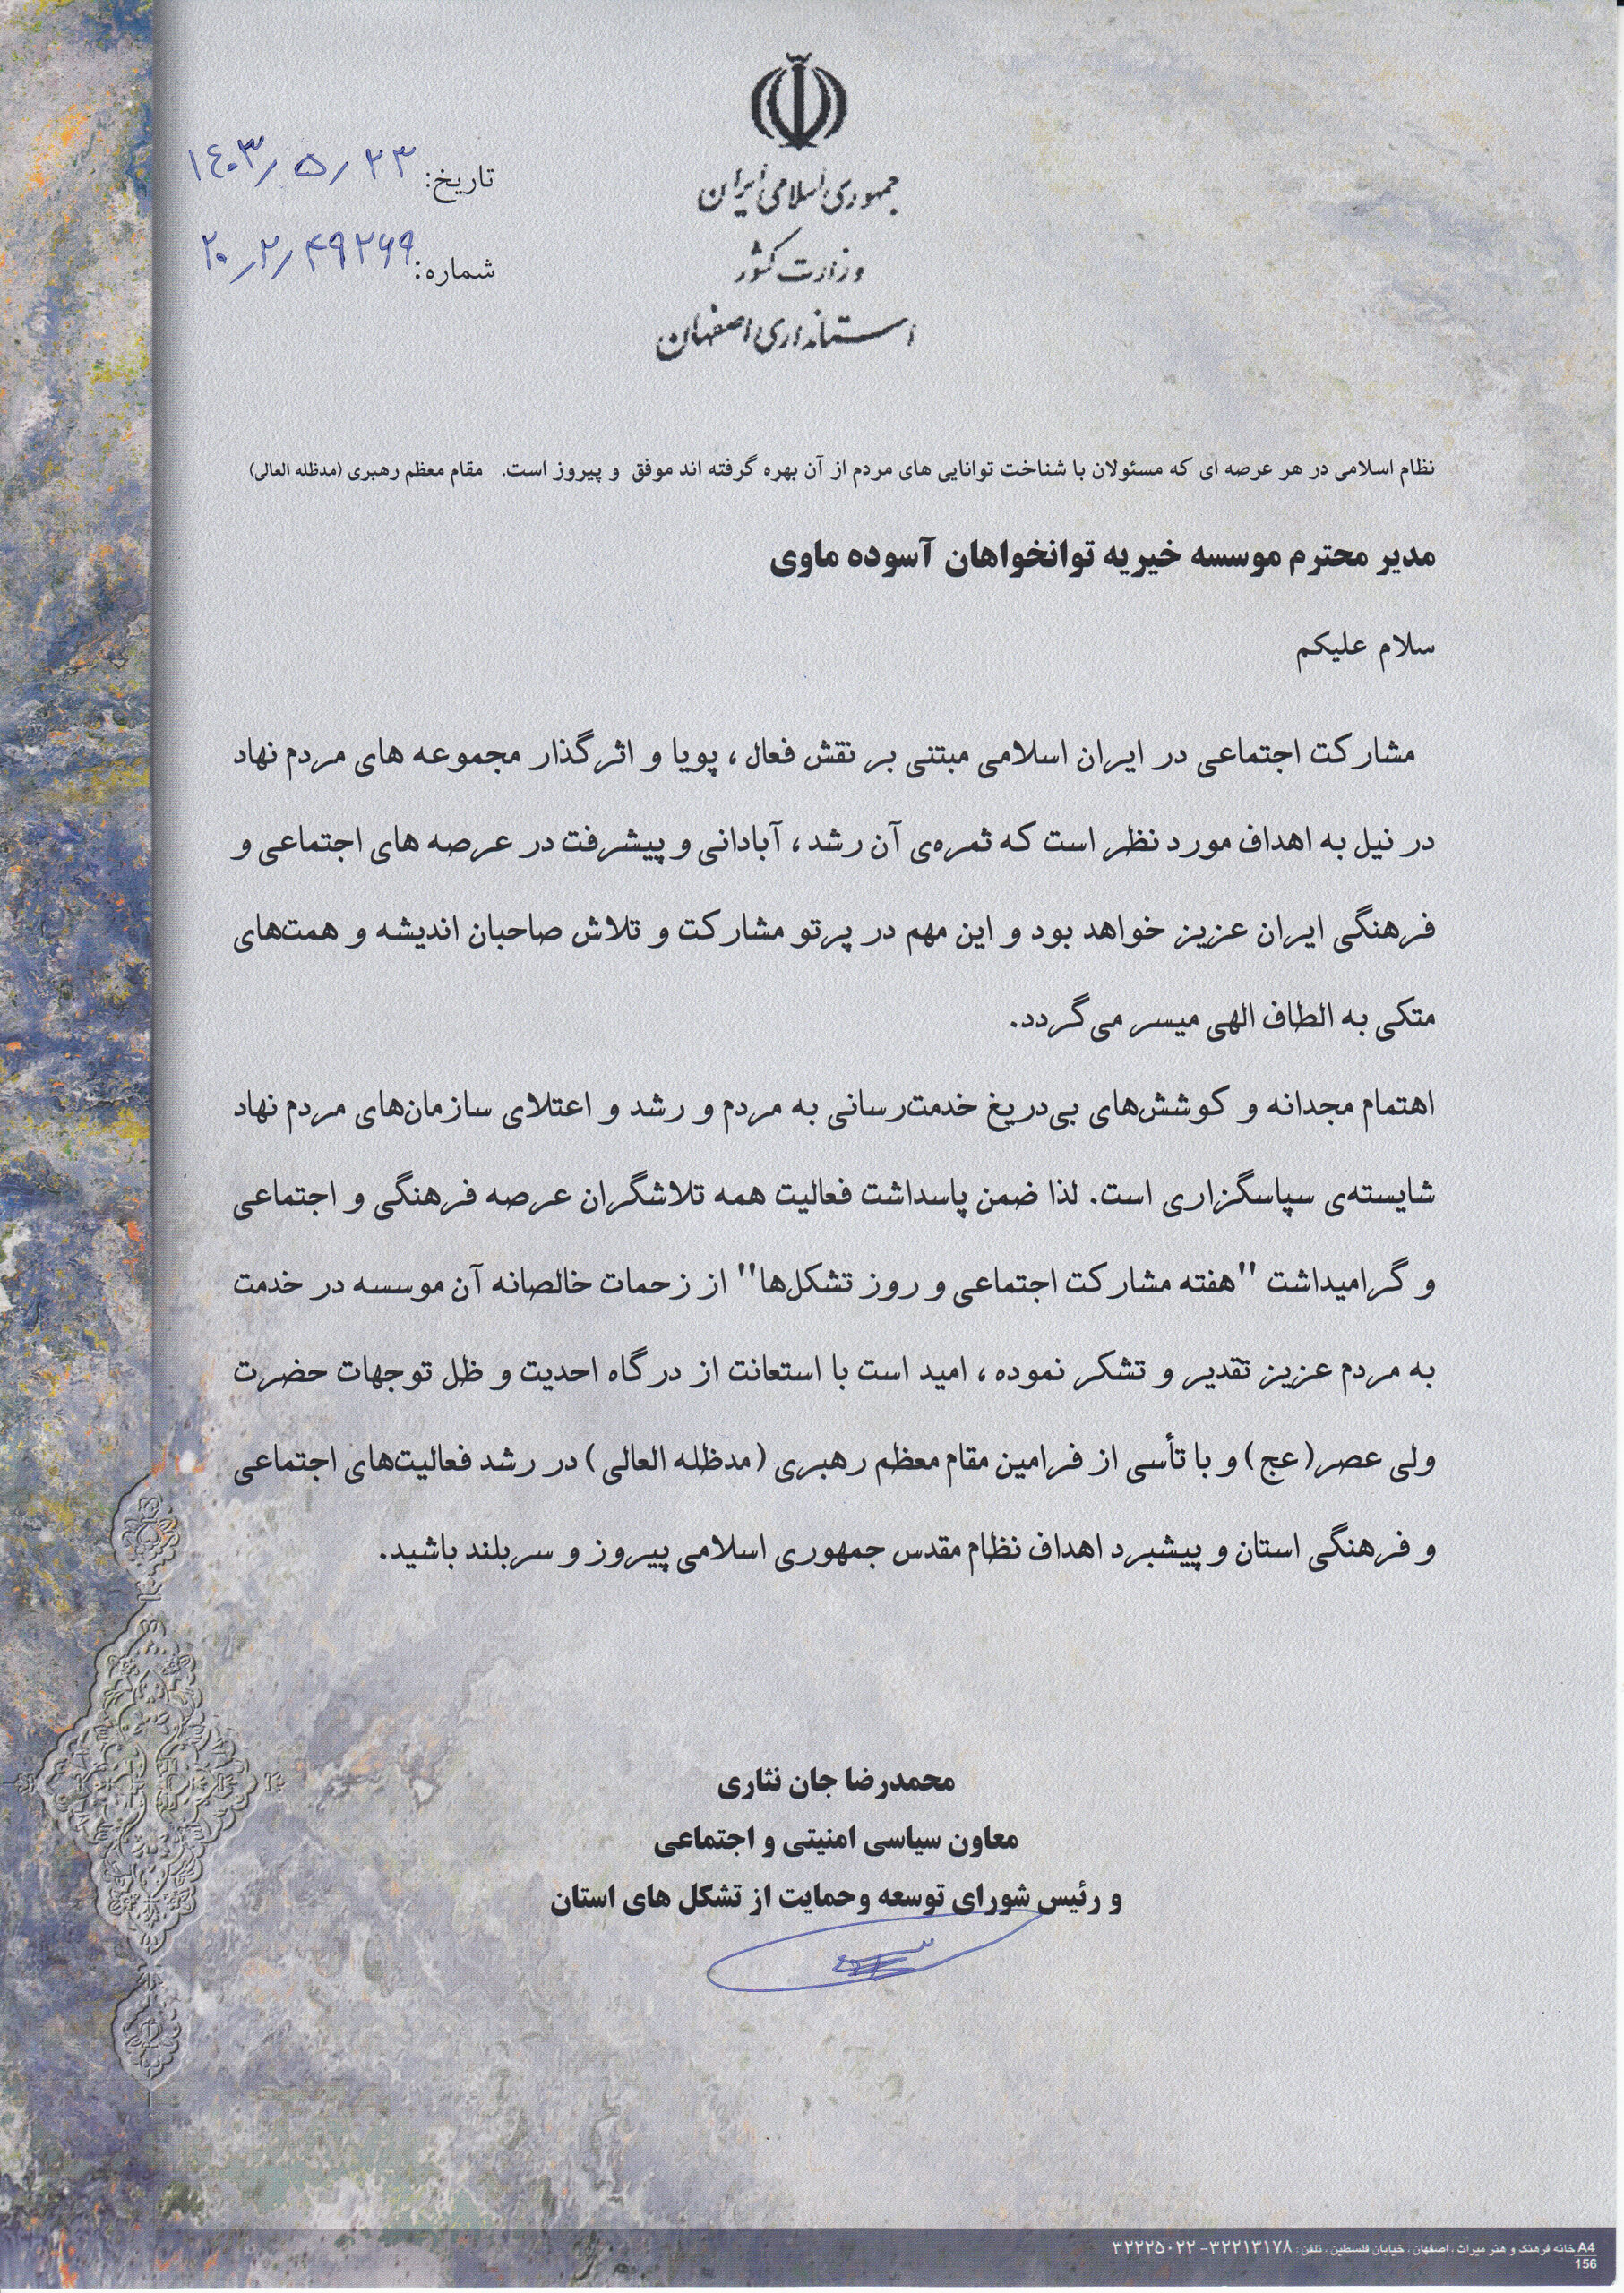 جمهوری اسلامی ایران
وزارت کشور
استانداری اصفهان
تاریخ: ۱۴۰۳/۵/۲۳
شماره: ۲۰/۲/۴۹۲۶۹
نظام اسلامی در هر عرصه ای که مسئولان با شناخت توانایی های مردم از آن بهره گرفته اند موفق و پیروز است. مقام معظم رهبری (مدظله العالی)
مدیر محترم موسسه خیریه توانخواهان آسوده ماوی
سلام علیکم
مشارکت اجتماعی در ایران اسلامی مبتنی بر نقش فعال ، پویا و اثرگذار مجموعه های مردم نهاد
در نیل به اهداف مورد نظر است که ثمره‌ی آن رشد ، آبادانی و پیشرفت در عرصه های اجتماعی و
فرهنگی ایران عزیز خواهد بود و این مهم در پرتو مشارکت و تلاش صاحبان اندیشه و همت‌های
متکی به الطاف الهی میسر می‌گردد.
اهتمام مجدانه و کوشش‌های بی‌دریغ خدمت‌رسانی به مردم و رشد و اعتلای سازمان‌های مردم نهاد
شایسته‌ی سپاسگزاری است. لذا ضمن پاسداشت فعالیت همه تلاشگران عرصه فرهنگی و اجتماعی
و گرامیداشت "هفته مشارکت اجتماعی و روز تشکل‌ها" از زحمات خالصانه آن موسسه در خدمت
به مردم عزیز تقدیر و تشکر نموده ، امید است با استعانت از درگاه احدیت و ظل توجهات حضرت
ولی عصر(عج) و با تأسی از فرامین مقام معظم رهبری (مدظله العالی) در رشد فعالیت‌های اجتماعی
و فرهنگی استان و پیشبرد اهداف نظام مقدس جمهوری اسلامی پیروز و سربلند باشید.
محمدرضا جان نثاری
معاون سیاسی امنیتی و اجتماعی
و رئیس شورای توسعه وحمایت از تشکل های استان
A4 خانه فرهنگ و هنر میراث ، اصفهان ، خیابان فلسطین ، تلفن : ۳۲۲۱۳۱۷۸ - ۳۲۲۲۵۰۲۲
156